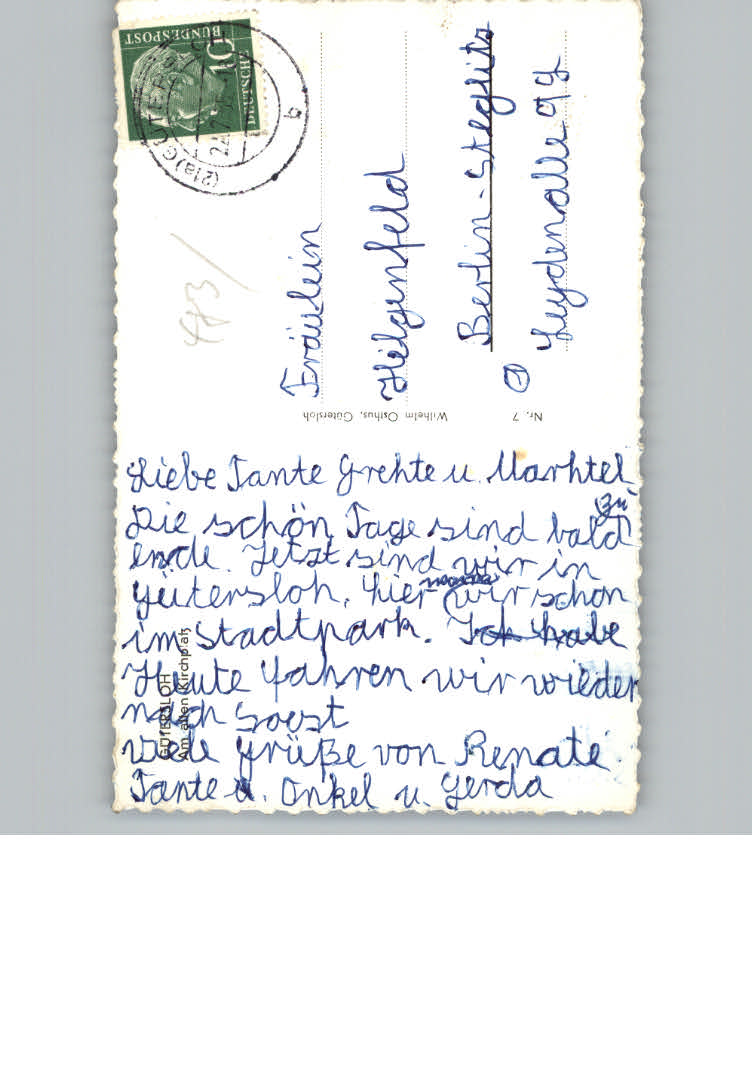 Liebe Tante Grehte u. Marhtel
Die schön Tage sind bald zu
ende. Jetzt sind wir in
Gütersloh, hier waren wir schon
im Stadtpark. Ich habe
Heute fahren wir wieder
nach Soest
Viele Grüße von Renate
Tante u. Onkel u. Gerda
GÜTERSLOH
Am alten Kirchplatz
Fräulein
Hilgenfeld
Berlin-Steglitz
Leydenalle 94
Wilhelm Osthus, Gütersloh
Nr. 7
DEUTSCHE
BUNDESPOST
10
(21a) GÜTERSLOH
b